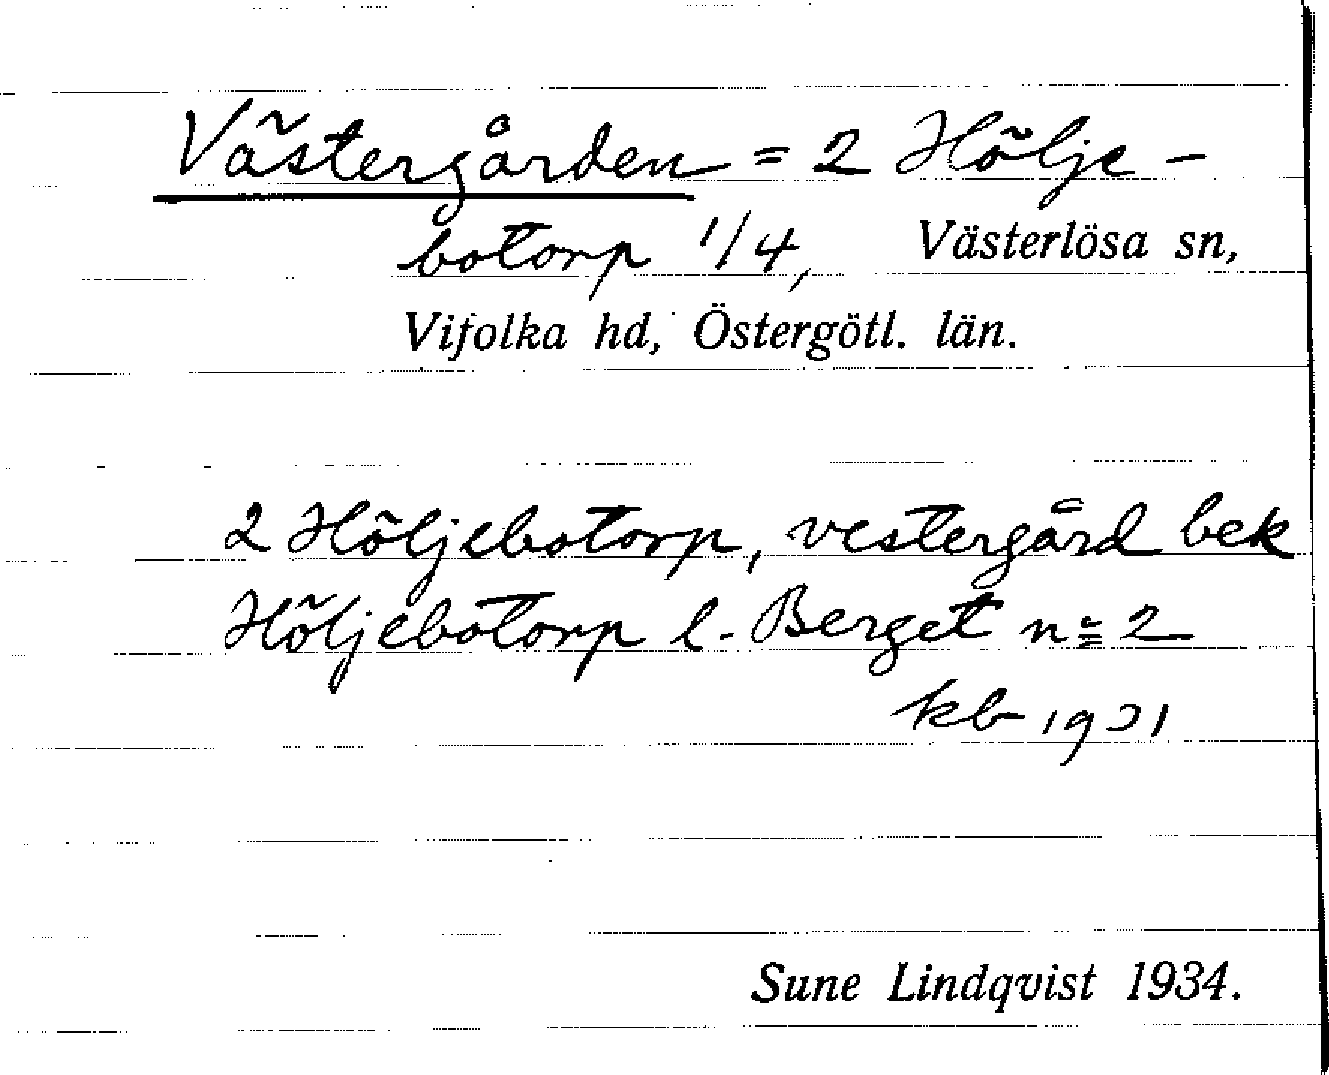 Västergården = 2 Hölje-
botorp 1/4, Västerlösa sn,
Vifolka hd, Östergötl. län.
2 Höljebotorp, vestergård bek
Höljebotorp l. Berget nº 2
kb 1921
Sune Lindqvist 1934.